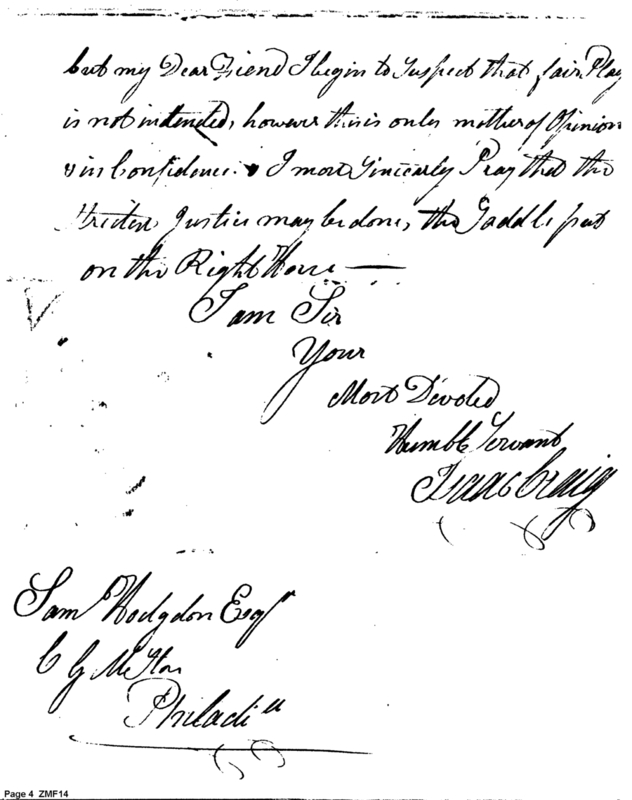 but my Dear Friend I begin to Suspect that fair Play
is not intended, however this is only matter of Opinion
& in Confidence. I most Sincerely Pray that the
Strictest Justice may be done, the Saddle put
on the Right Horse —
I am Sir
Your
Most Devoted
Humble Servant
Isaac Craig
Saml Hodgdon Esqr
Philadia
Page 4 ZMF14